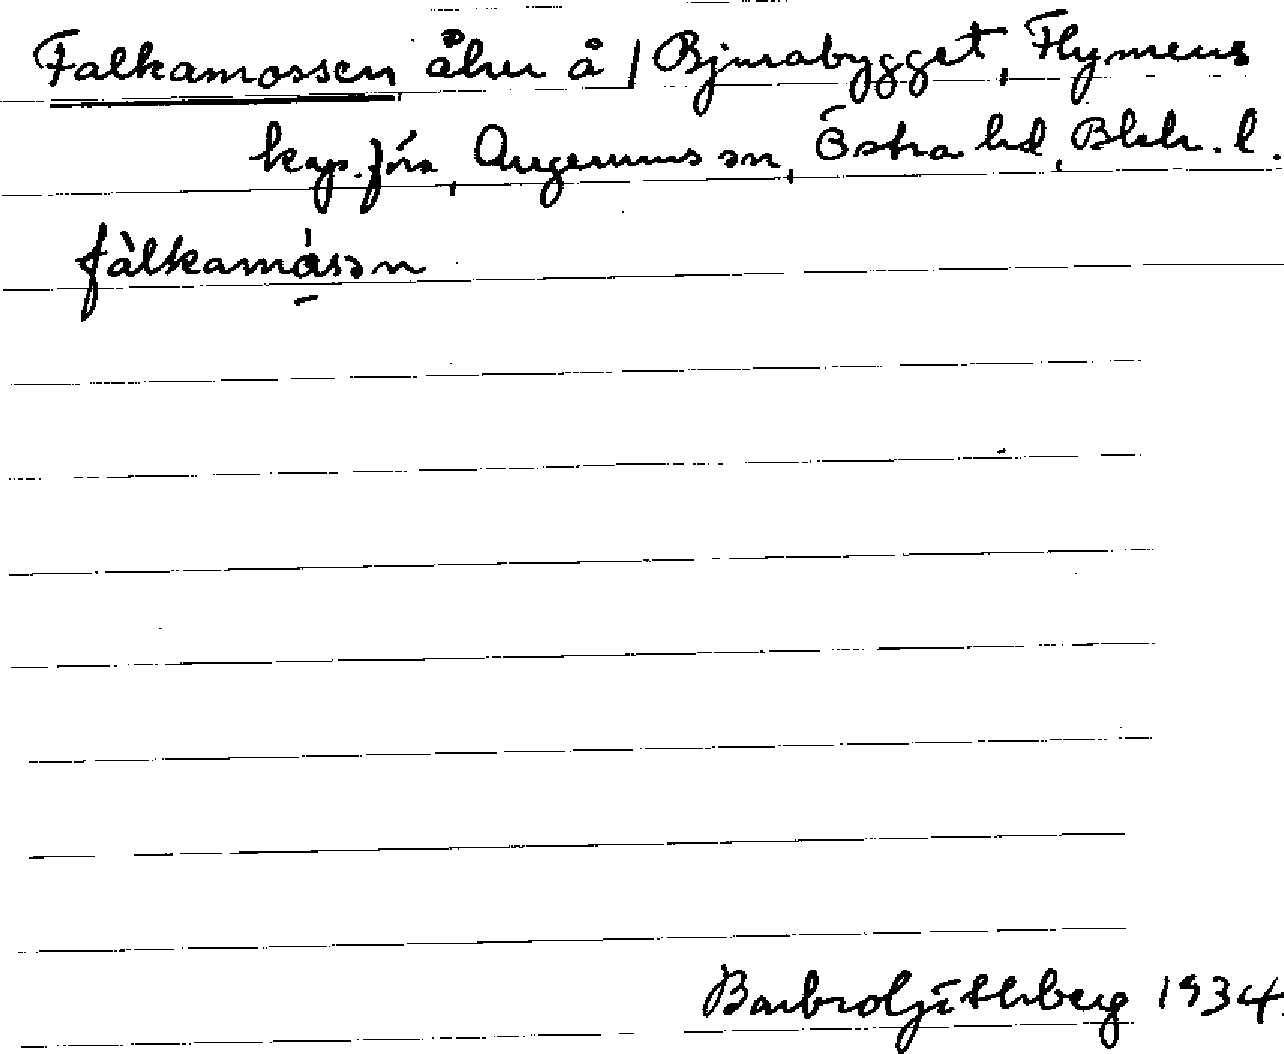 Falkamossen åker å / Bjurabygget, Flymens
kap.förs, Augerums sn, Östra hd, Blek. l.
fàlkamåsən
Barbro Ljüthberg 1934.